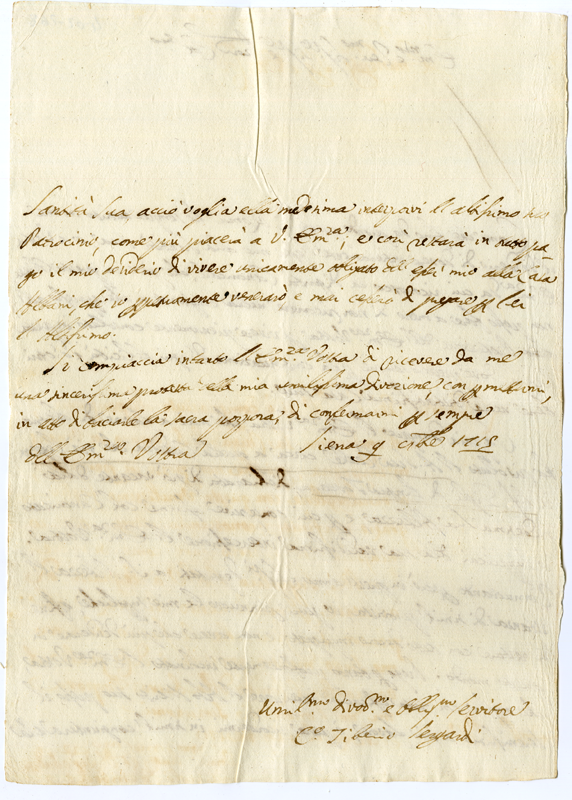 Santità Sua acciò voglia alla medesima interporvi il altissimo suo
Patrocinio, come più piacerà a V. Em.za; e così restarà in tutto pa-
go il mio desiderio di vivere unicamente obligato dell' esser mio alla Casa
Albani, che io perpetuamente venerarò, e mai cessarò di pregare per lei
l' Altissimo.
Si compiaccia intanto l' Em.za Vostra di ricevere da me
una sincerissima protesta della mia umilissima divozione, con permettermi,
in atto di baciarle la sacra porpora, di confermarmi per sempre
Dell' Em.za Vostra Siena 9 1715
Umil.mo Divot.mo e Obblig.mo Servitore
Tiberio Sergardi